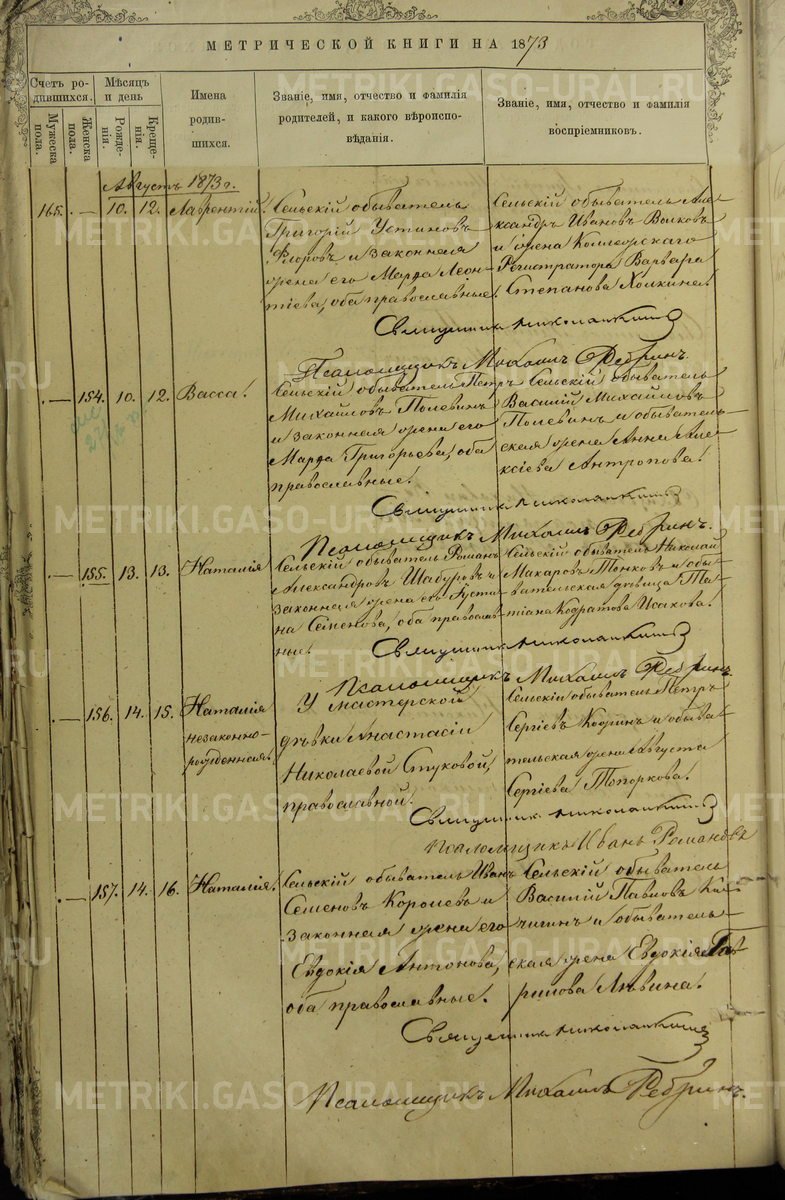 МЕТРИЧЕСКОЙ КНИГИ НА 1873
Счетъ ро-
дившихся.
Мѣсяцъ
и день
Мужеска
пола.
Женска
пола.
Рожде-
нія.
Креще-
нія.
Имена
родив-
шихся.
Званіе, имя, отчество и фамилія
родителей, и какого вѣроиспо-
вѣданія.
Званіе, имя, отчество и фамилія
воспріемниковъ.
Августъ 1873 г.
165. — 10. 12. Лаврентій.
Сельскій обыватель
Григорій Устиновъ
Флоровъ и законная
жена его Марфа Леон-
тіева, оба православные.
Сельскій обыватель Але-
ксандръ Ивановъ Волковъ
и жена Коллежскаго
Регистратора Варвара
Степанова Холкина.
Священникъ
Псаломщикъ Михаилъ Ребринъ.
— 154. 10. 12. Васса.
Сельскій обыватель Петръ
Михайловъ Полевинъ
и законная жена его
Марфа Григорьева, оба
православные.
Сельскій обыватель
Василій Михайловъ
Полевинъ и обыватель-
ская жена Анна Але-
ксіева Антропова.
Священникъ
Псаломщикъ Михаилъ Ребринъ.
— 155. 13. 13. Наталія
Сельскій обыватель Романъ
Александровъ Шабуровъ и
законная жена его Усти-
на Семенова, оба православ-
ные.
Сельскій обыватель Николай
Макаровъ Тонковъ и обы-
вательская дѣвица Та-
тіана Кодратова Исакова.
Священникъ
Псаломщикъ Михаилъ Ребринъ.
— 156. 14. 15. Наталія
незаконно-
рожденная.
У мастерской
дѣвки Анастасіи
Николаевой Стуковой,
православной.
Сельскій обыватель Петръ
Сергіевъ и обыва-
тельская жена Августа
Сергіева Топоркова.
Священникъ
Псаломщикъ Иванъ Романовъ
— 157. 14. 16. Наталія.
Сельскій обыватель Иванъ
Семеновъ Королевъ и
законная жена его
Евдокія Антонова,
оба православные.
Сельскій обыватель
Василій Павловъ Ки-
чигинъ и обыватель-
ская жена Евдокія
Львина.
Священникъ
Псаломщикъ Михаилъ Ребринъ.
METRIKI.GASO-URAL.RU